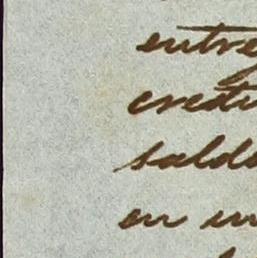 entre
credi
sald
en un